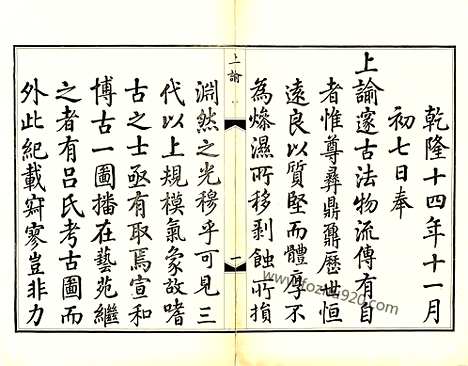 乾隆十四年十一月
初七日奉
上諭邃古法物流傳有自
者惟尊彝鼎鼐歷世恒
遠良以質堅而體厚不
為燥濕所移剥蝕所損
上諭
一
淵然之光穆乎可見三
代以上規模氣象故嗜
古之士亟有取焉宣和
博古一圖播在藝苑繼
之者有呂氏考古圖而
外此紀載寂寥豈非力
www.fozhu920.com